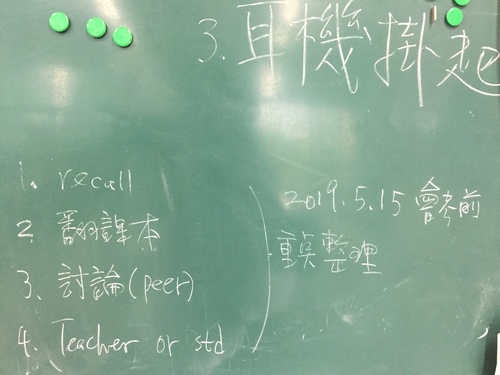 3.耳機掛起
1. recall
2. 翻課本
3. 討論(peer)
4. Teacher or std
2019.5.15 會考前
重點整理